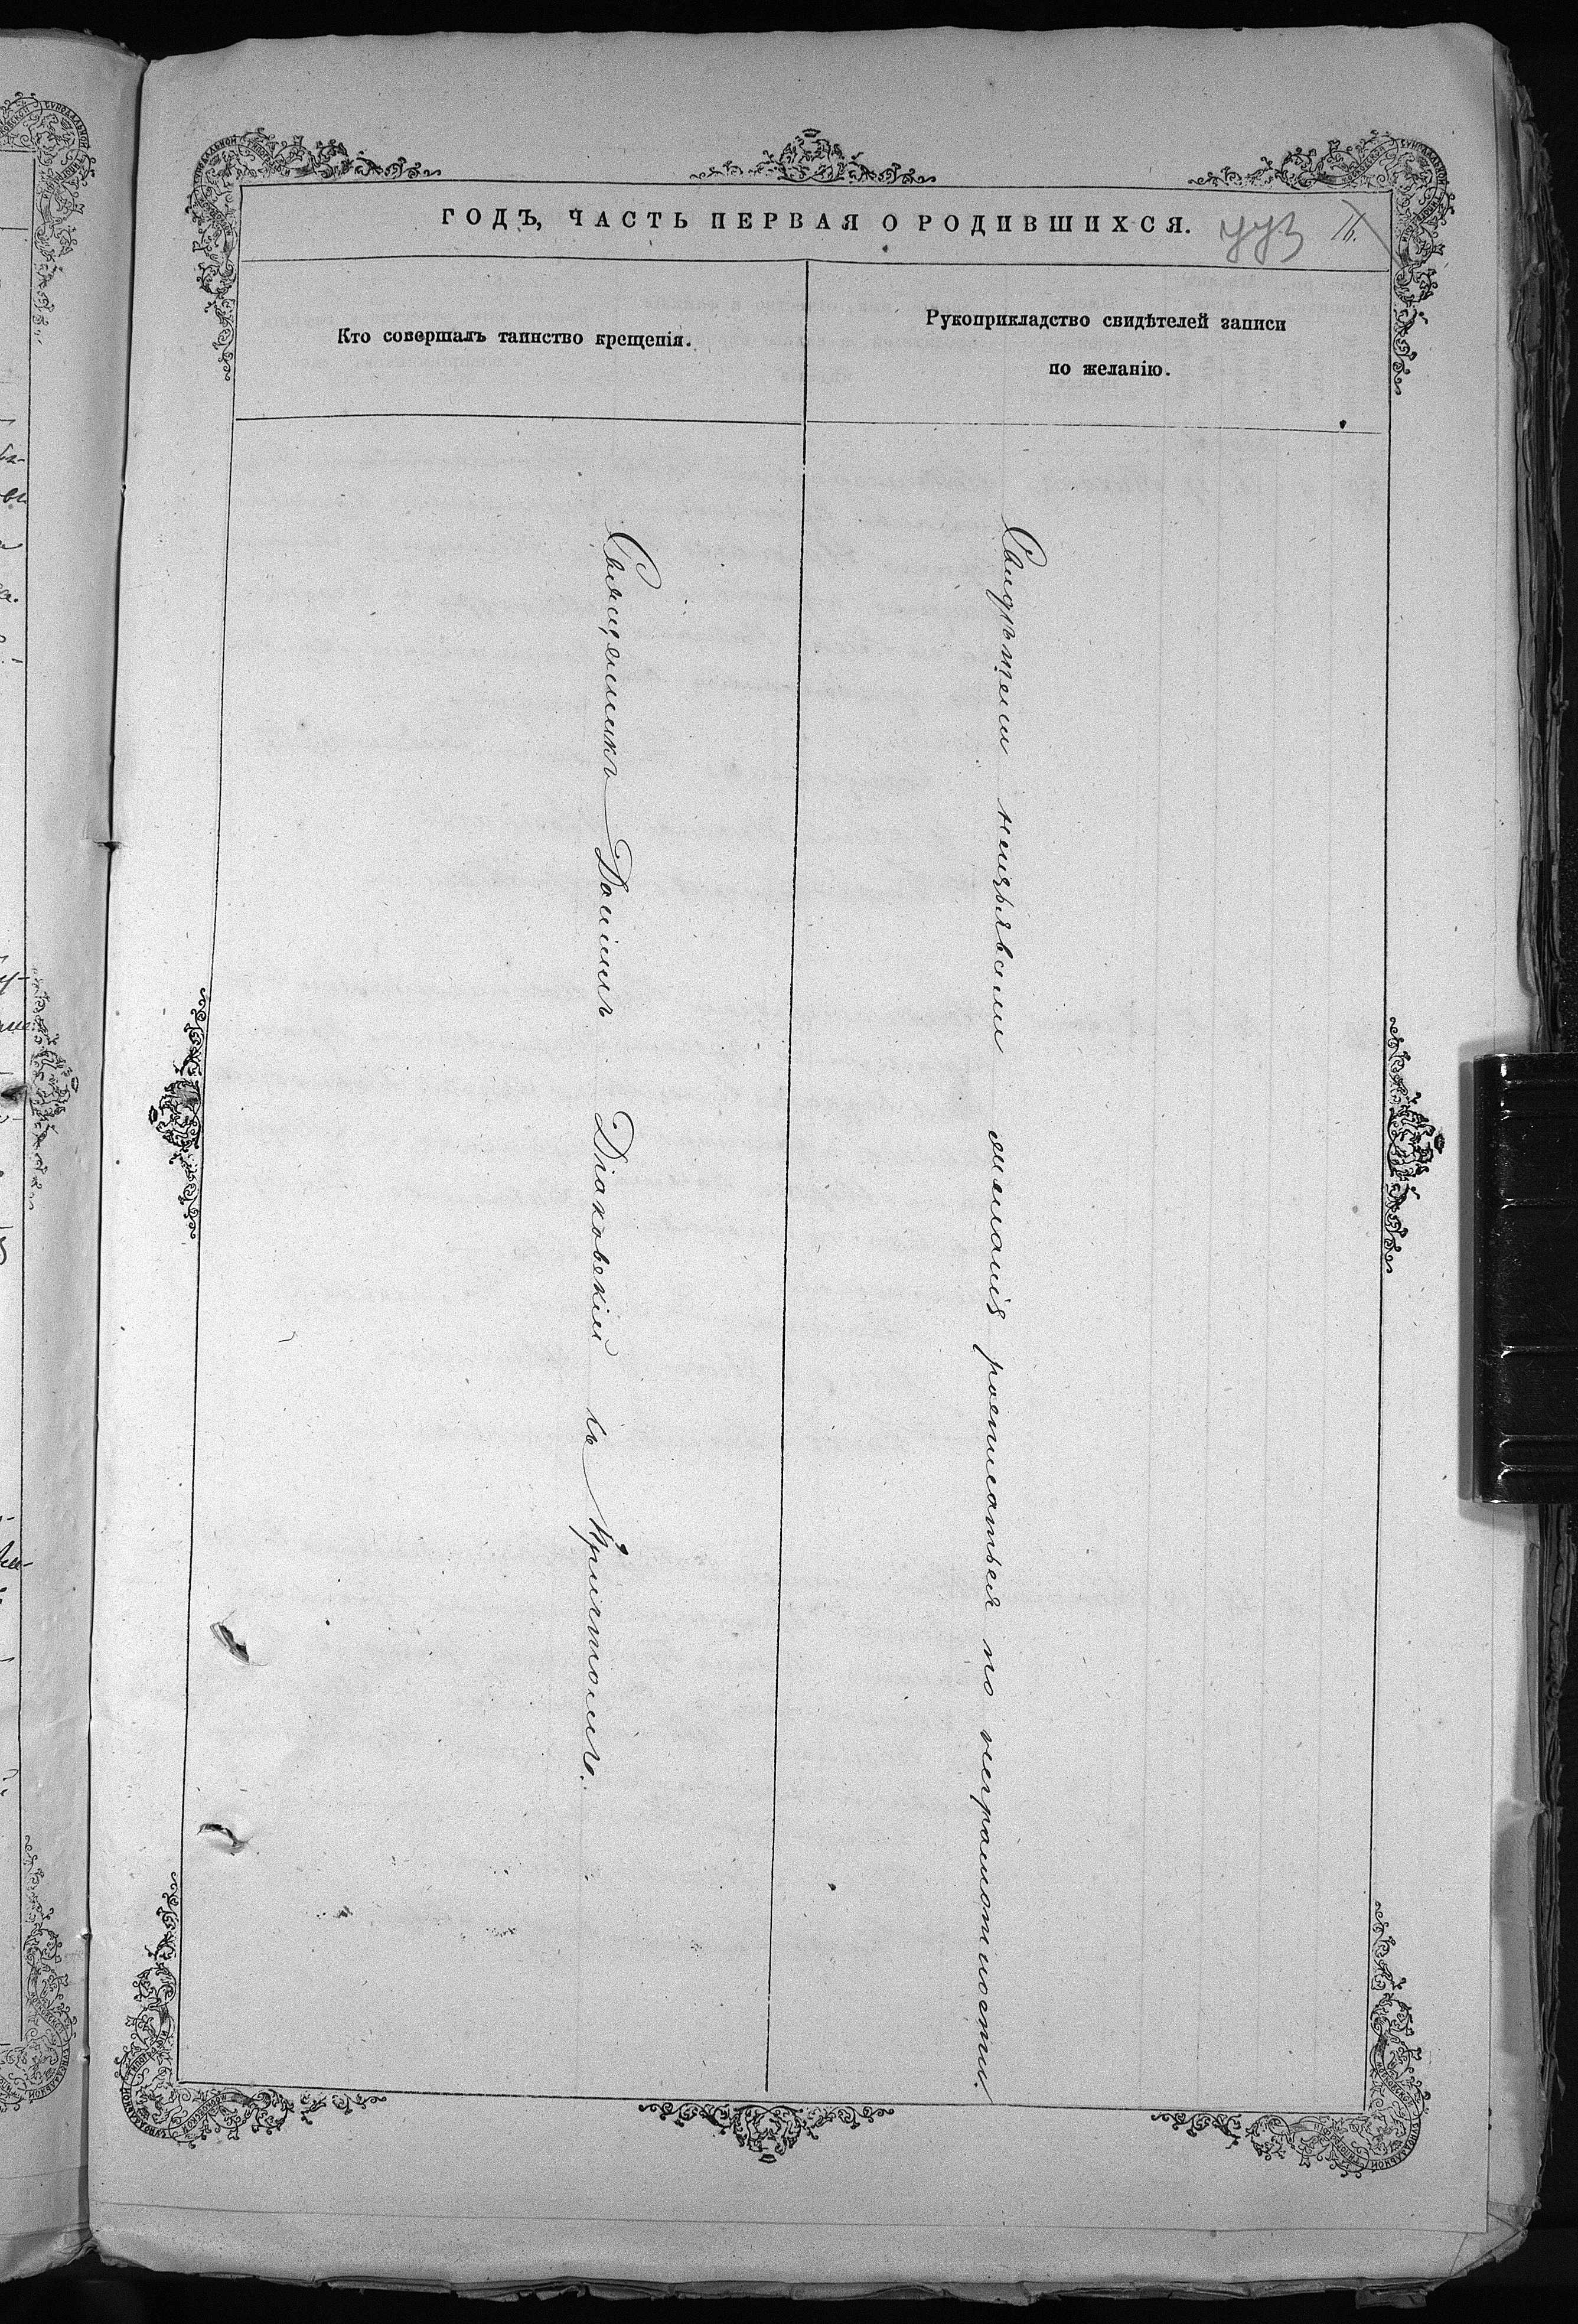 ГОДЪ, ЧАСТЬ ПЕРВАЯ О РОДИВШИХСЯ.
16.
Кто совершалъ таинство крещенія.
Рукоприкладство свидѣтелей записи
по желанію.
Священникъ Даніилъ Діаковскій съ Причтомъ.
Свидѣтели неизъявили желанія росписатьса по неграмотности.